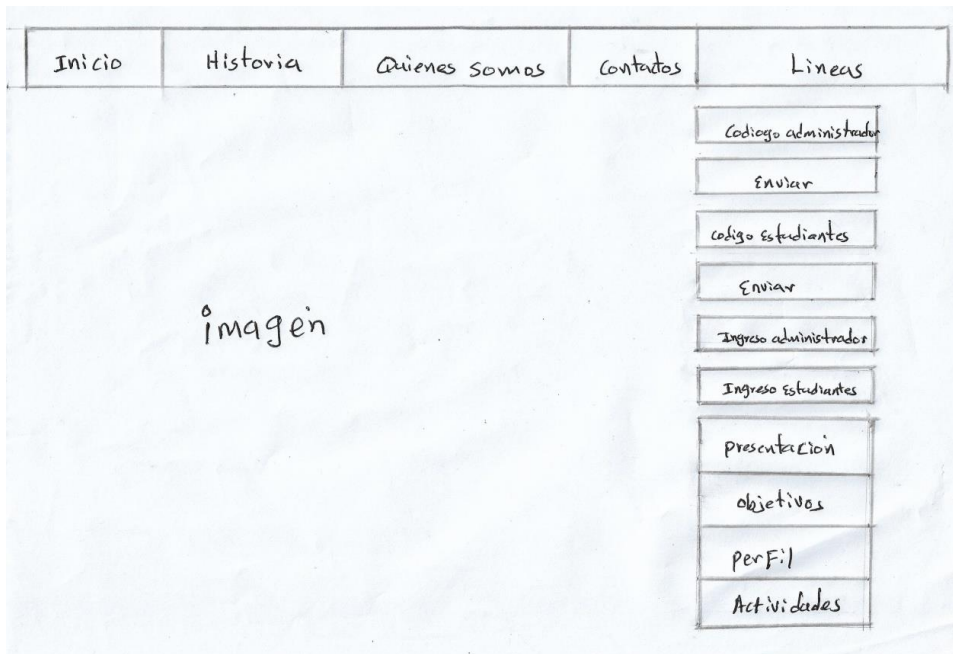 Inicio Historia Quienes somos Contactos Lineas
Codiogo administrador
Enviar
codigo Estudiantes
Enviar
imagen
Ingreso administrador
Ingreso Estudiantes
presentación
objetivos
perfil
Actividades